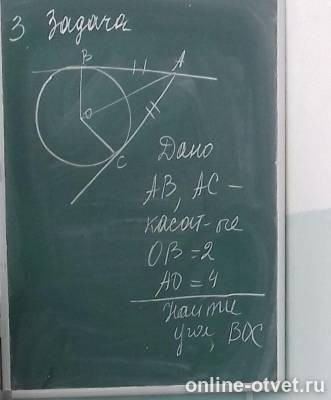 3 Задача
B
A
O
C
Дано
AB, AC –
касат-ые
OB = 2
AO = 4
Найти
угол, BOC
online-otvet.ru